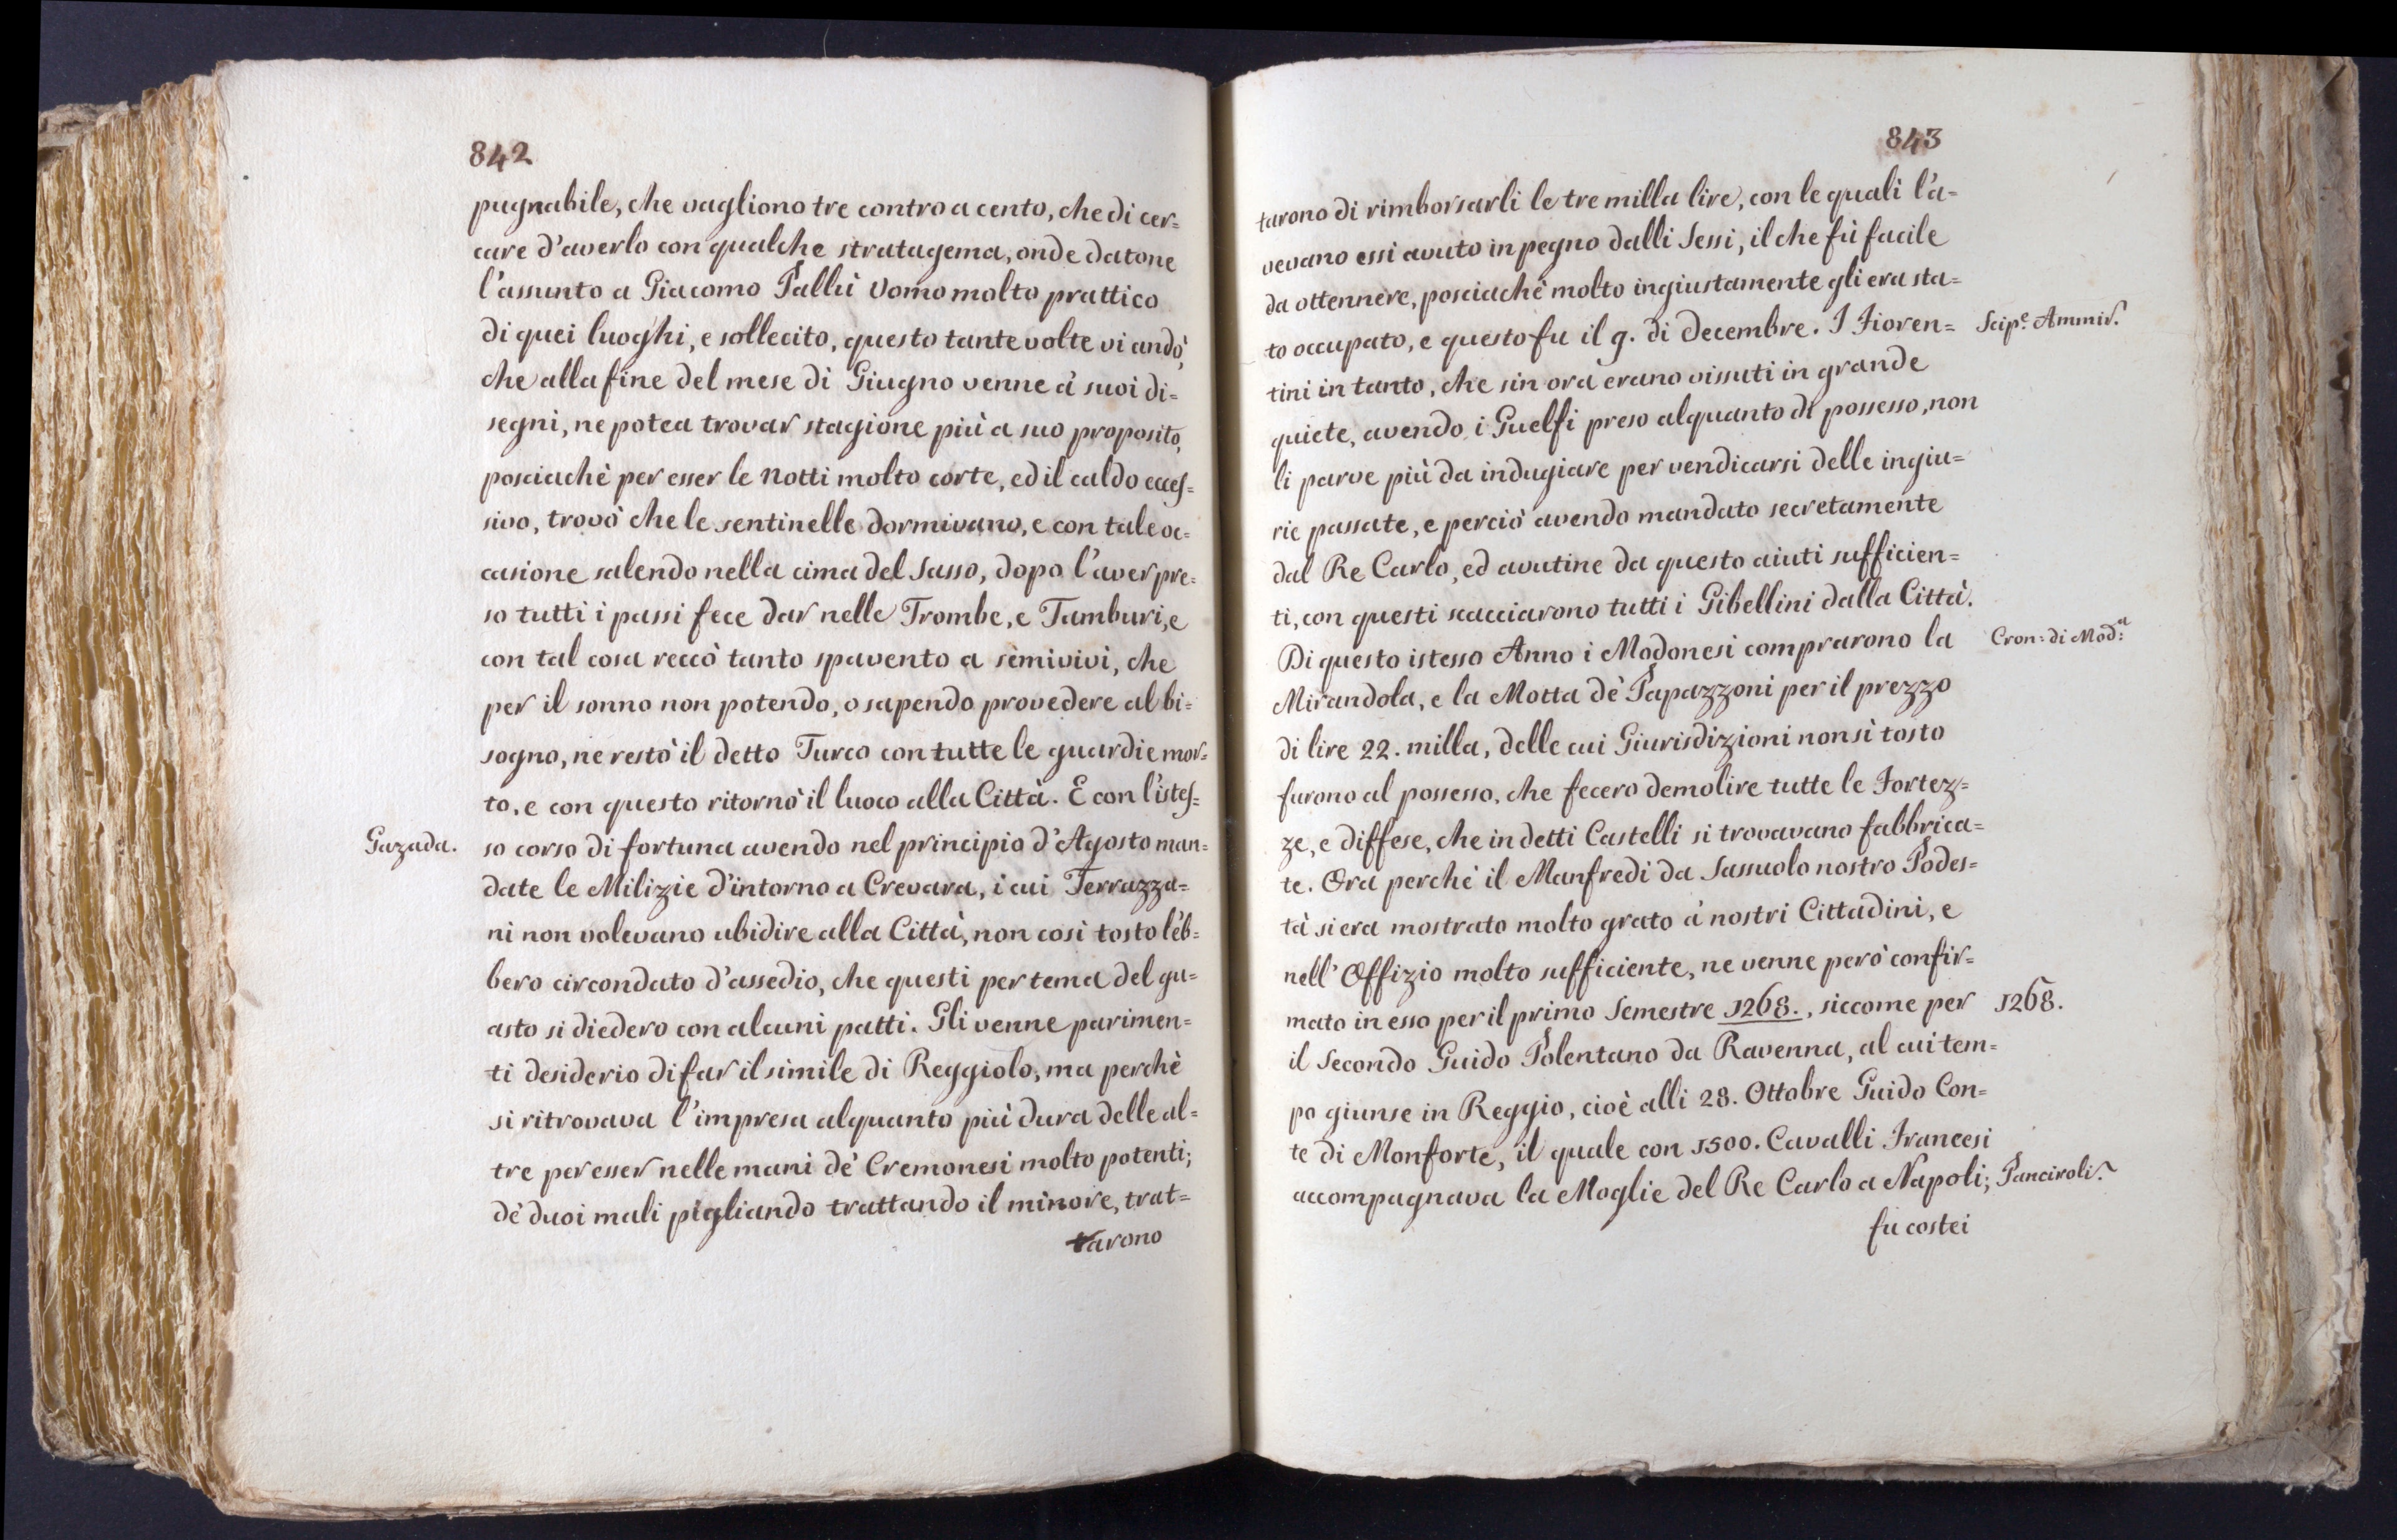 842
pugnabile, che vagliono tre contro a cento, che di cer=
care d'averlo con qualche stratagema, onde datone
l'assunto a Giacomo Pallù Vomo molto prattico
di quei luoghi, e sollecito, questo tante volte vi andò,
che alla fine del mese di Giugno venne à suoi di=
segni, ne potea trovar stagione più a suo proposito,
posciachè per esser le Notti molto corte, ed il caldo ecces=
sivo, trovò che le sentinelle dormivano, e con tale oc=
casione salendo nella cima del Sasso, dopo l'aver pre=
so tutti i passi fece dar nelle Trombe, e Tamburi, e
con tal cosa reccò tanto spavento a semivivi, che
per il sonno non potendo, o sapendo provedere al bi=
sogno, ne restò il detto Turco con tutte le guardie mor=
to, e con questo ritornò il luoco alla Città. E con l'istes=
Gazada. so corso di fortuna avendo nel principio d'Agosto man=
date le Milizie d'intorno a Crevara, i cui Terrazza=
ni non volevano ubidire alla Città, non così tosto l'eb=
bero circondato d'assedio, che questi per tema del gu=
asto si diedero con alcuni patti. Gli venne parimen=
ti desiderio di far il simile di Reggiolo, ma perchè
si ritrovava l'impresa alquanto più dura delle al=
tre per esser nelle mani dè Cremonesi molto potenti;
dè duoi mali pigliando trattando il minore, trat=
tarono
843
tarono di rimborsarli le tre milla lire, con le quali l'a=
vevano essi avuto in pegno dalli Sessi, il che fù facile
da ottennere, posciachè molto ingiustamente gli era sta=
to occupato, e questo fu il 9. di Decembre. I Fioren= Scip.e Ammir.
tini in tanto, che sin ora erano vissuti in grande
quiete, avendo i Guelfi preso alquanto di possesso, non
li parve più da indugiare per vendicarsi delle ingiu=
rie passate, e perciò avendo mandato secretamente
dal Re Carlo, ed avutine da questo aiuti sufficien=
ti, con questi scacciarono tutti i Gibellini dalla Città.
Di questo istesso Anno i Modonesi comprarono la Cron: di Mod:a
Mirandola, e la Motta dè Papazzoni per il prezzo
di lire 22. milla, delle cui Giurisdizioni non sì tosto
furono al possesso, che fecero demolire tutte le Fortez=
ze, e diffese, che in detti Castelli si trovavano fabbrica=
te. Ora perchè il Manfredi da Sassuolo nostro Podes=
tà si era mostrato molto grato à nostri Cittadini, e
nell'Offizio molto sufficiente, ne venne però confir=
mato in esso per il primo Semestre 1268., siccome per 1268.
il Secondo Guido Polentano da Ravenna, al cui tem=
po giunse in Reggio, cioè alli 28. Ottobre Guido Con=
te di Monforte, il quale con 1500. Cavalli Francesi
accompagnava la Moglie del Re Carlo a Napoli; Panciroli.
fu costei